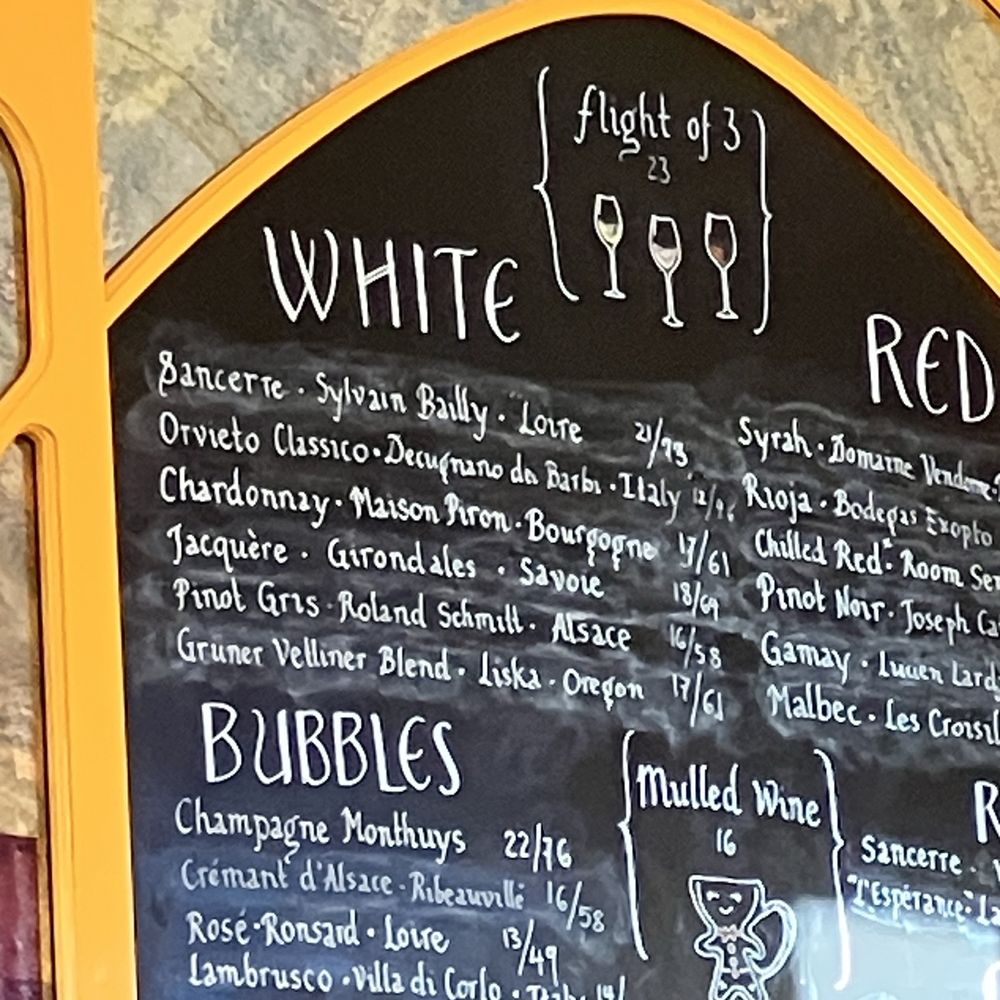 flight of 3
23
WHITE
Sancerre · Sylvain Bailly · Loire 21/73
Orvieto Classico · Decugnano de Barbi · Italy 12/46
Chardonnay · Maison Piron · Bourgogne 17/61
Jacquère · Girondales · Savoie 18/69
Pinot Gris · Roland Schmitt · Alsace 16/58
Gruner Velliner Blend · Liska · Oregon 17/61
RED
Syrah · Domaine
Rioja · Bodegas Exopto
Chilled Red · Room
Pinot Noir · Joseph
Gamay · Lucien
Malbec · Les
BUBBLES
Champagne Monthuys 22/76
Crémant d'Alsace · Ribeauvillé 16/58
Rosé · Ronsard · Loire 13/49
Lambrusco · Villa di Corlo · Italy 14/
Mulled Wine
16
Sancerre ·
"L'Espérance"